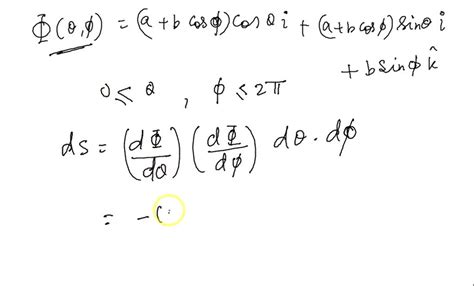 Φ(θ,φ) = (a+b cosφ)cosθ i + (a+b cosφ) sinθ i
+ b sinφ k̂
0 ≤ θ , φ ≤ 2π
ds = (dΦ/dθ) (dΦ/dφ) dθ · dφ
= - (